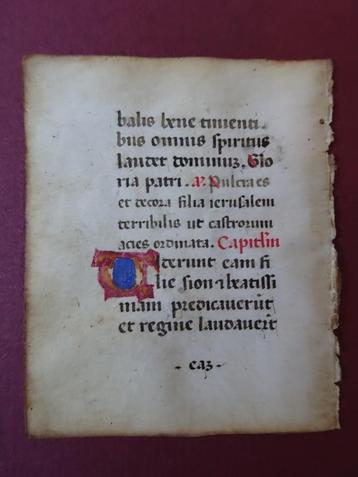 balis bene tinienti.
bus omnis spiritus
laudet dominuʒ. Glo
ria patri. aʳ. Pulcra es
et decora filia ierusalem
terribilis ut castrorum
acies ordinata. Capitl'm
Uiderunt eam fi
lie sion ⁊ beatissi
mam predicaverūt
et regine laudaverūt
- eaʒ -